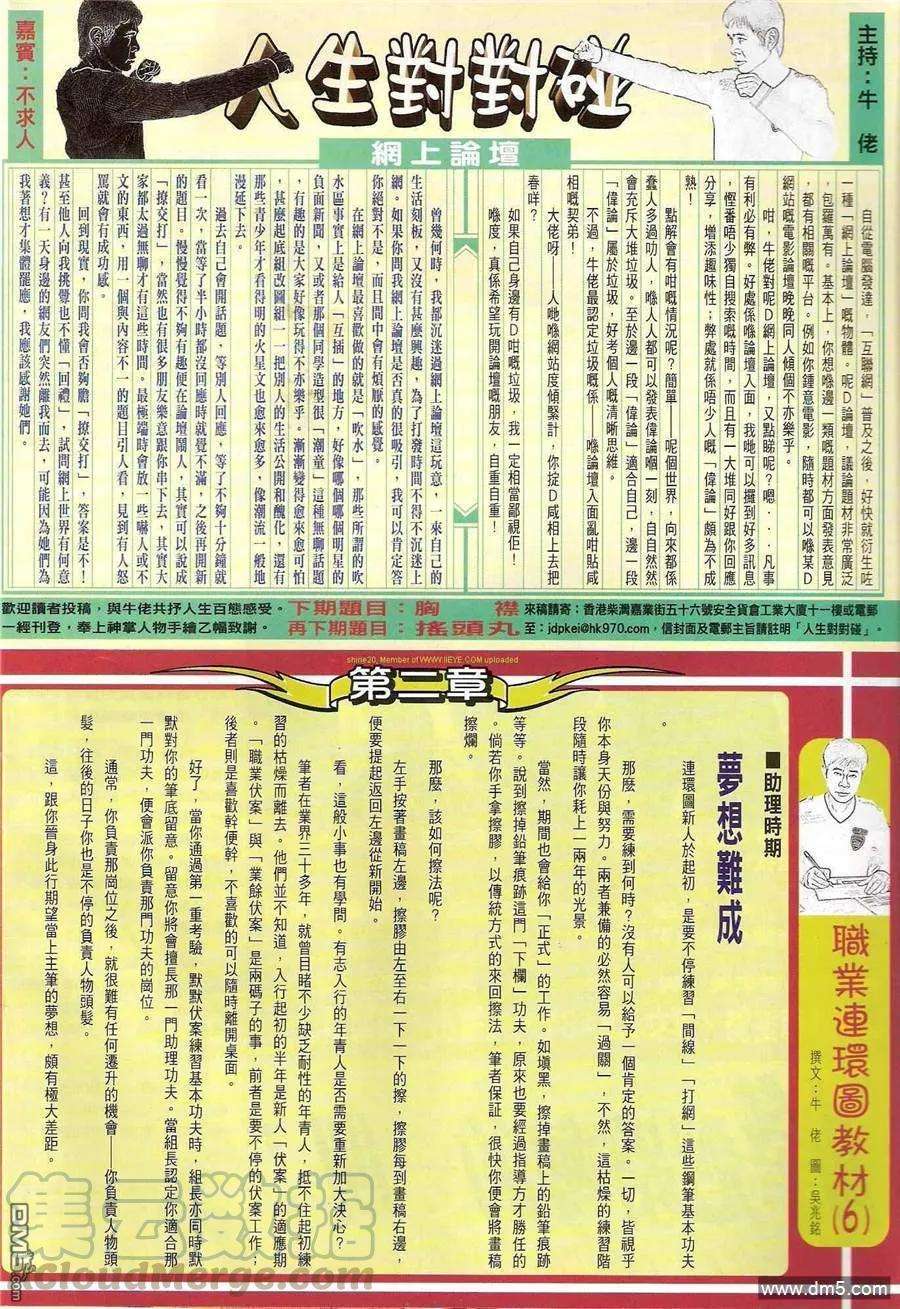 嘉賓：不求人
人生對對碰
主持：牛 佬
網上論壇
自從電腦發達，「互聯網」普及之後，好快就衍生咗
一種「網上論壇」嘅物體。呢Ｄ論壇，議論題材非常廣泛
，包羅萬有。基本上，你想喺邊一類嘅題材方面發表意見
，都有相關嘅平台。例如你鍾意電影，隨時都可以喺某Ｄ
網站嘅電影論壇晚晚同人傾個不亦樂乎。
咁，牛佬對呢Ｄ網上論壇，又點睇呢？嗯．．．凡事
有利必有弊。好處係喺論壇入面，我哋可以攞到好多訊息
，慳番唔少獨自搜索嘅時間，而且有一大堆同好跟你回應
分享，增添趣味性；弊處就係唔少人嘅「偉論」頗為不成
熟！
點解會有咁嘅情況呢？簡單——呢個世界，向來都係
蠢人多過叻人，喺人人都可以發表偉論嗰一刻，自自然然
會充斥大堆垃圾。至於邊一段「偉論」適合自己，邊一段
「偉論」屬於垃圾，好考個人嘅清晰思維。
不過，牛佬最認定垃圾嘅係——喺論壇入面亂咁貼咸
相嘅契弟！
大佬呀——人哋喺網站度傾緊計，你掟Ｄ咸相上去把
春咩？
如果自己身邊有Ｄ咁嘅垃圾，我一定相當鄙視佢！
喺度，真係希望玩開論壇嘅朋友，自重自重！
曾幾何時，我都沉迷過網上論壇這玩意，一來自己的
生活刻板，又沒有甚麼興趣，為了打發時間不得不沉迷上
網。如果你問我網上論壇是否真的很吸引，我可以肯定答
你絕對不是，而且間中會有煩厭的感覺。
在網上論壇最喜歡做的就是「吹水」，那些所謂的吹
水區事實上是給人「互插」的地方，好像哪個哪個明星的
負面新聞，又或者那個同學造型很「潮童」這種無聊話題
，有趣的是大家好像玩得不亦樂乎。漸漸變得愈來愈可怕
，甚麼起底組改圖組一一把別人的生活公開和醜化，還有
那些青少年才看得明的火星文也愈來愈多，像潮流一般地
漫延下去。
過去自己會開話題，等別人回應，等了不夠十分鐘就
看一次，當等了半小時都沒回應時就覺不滿，之後再開新
的題目。慢慢覺得不夠有趣便在論壇鬧人，其實可以說成
「撩交打」，當然也有很多朋友樂意跟你串下去，其實大
家都太過無聊才有這些時間。最極端時會放一些嚇人或不
文的東西，用一個與內容不一的題目引人看，見到有人怒
罵就會有成功感。
回到現實，你問我會否夠膽「撩交打」，答案是不！
甚至他人向我挑釁也不懂「回禮」，試問網上世界有何意
義？有一天身邊的網友們突然離我而去，可能因為她們為
我著想才集體罷應，我應該感謝她們。
歡迎讀者投稿，與牛佬共抒人生百態感受。
一經刊登，奉上神掌人物手繪乙幅致謝。
下期題目：胸 襟
再下期題目：搖頭丸
來稿請寄：香港柴灣嘉業街五十六號安全貨倉工業大廈十一樓或電郵
至：jdpkei@hk970.com，信封面及電郵主旨請註明「人生對對碰」。
shine20, Member of WWW.IIEYE.COM uploaded
第二章
職業連環圖教材(6)
撰文：牛 佬 圖：吳兆銘
■助理時期
夢想難成
連環圖新人於起初，是要不停練習「間線」、「打網」這些鋼筆基本功夫
。
那麼，需要練到何時？沒有人可以給予一個肯定的答案。一切，皆視乎
你本身天份與努力。兩者兼備的必然容易「過關」，不然，這枯燥的練習階
段隨時讓你耗上一兩年的光景。
當然，期間也會給你「正式」的工作。如填黑，擦掉畫稿上的鉛筆痕跡
等等。說到擦掉鉛筆痕跡這門「下欄」功夫，原來也要經過指導方才勝任的
。倘若你手拿擦膠，以傳統方式的來回擦法，筆者保證，很快你便會將畫稿
擦爛。
那麼，該如何擦法呢？
左手按著畫稿左邊，擦膠由左至右一下一下的擦，擦膠每到畫稿右邊，
便要提起返回左邊從新開始。
看，這般小事也有學問。有志入行的年青人是否需要重新加大決心？
筆者在業界三十多年，就曾目睹不少缺乏耐性的年青人，抵不住起初練
習的枯燥而離去。他們並不知道，入行起初的半年是新人「伏案」的適應期
。「職業伏案」與「業餘伏案」是兩碼子的事，前者是要不停的伏案工作；
後者則是喜歡幹便幹，不喜歡的可以隨時離開桌面。
好了，當你通過第一重考驗，默默伏案練習基本功夫時，組長亦同時默
默對你的筆底留意。留意你將會擅長那一門助理功夫。當組長認定你適合那
一門功夫，便會派你負責那門功夫的崗位。
通常，你負責那崗位之後，就很難有任何遷升的機會——你負責人物頭
髮，往後的日子你也是不停的負責人物頭髮。
這，跟你晉身此行期望當上主筆的夢想，頗有極大差距。
集云数据
CloudMerge.com
DM5.com
www.dm5.com